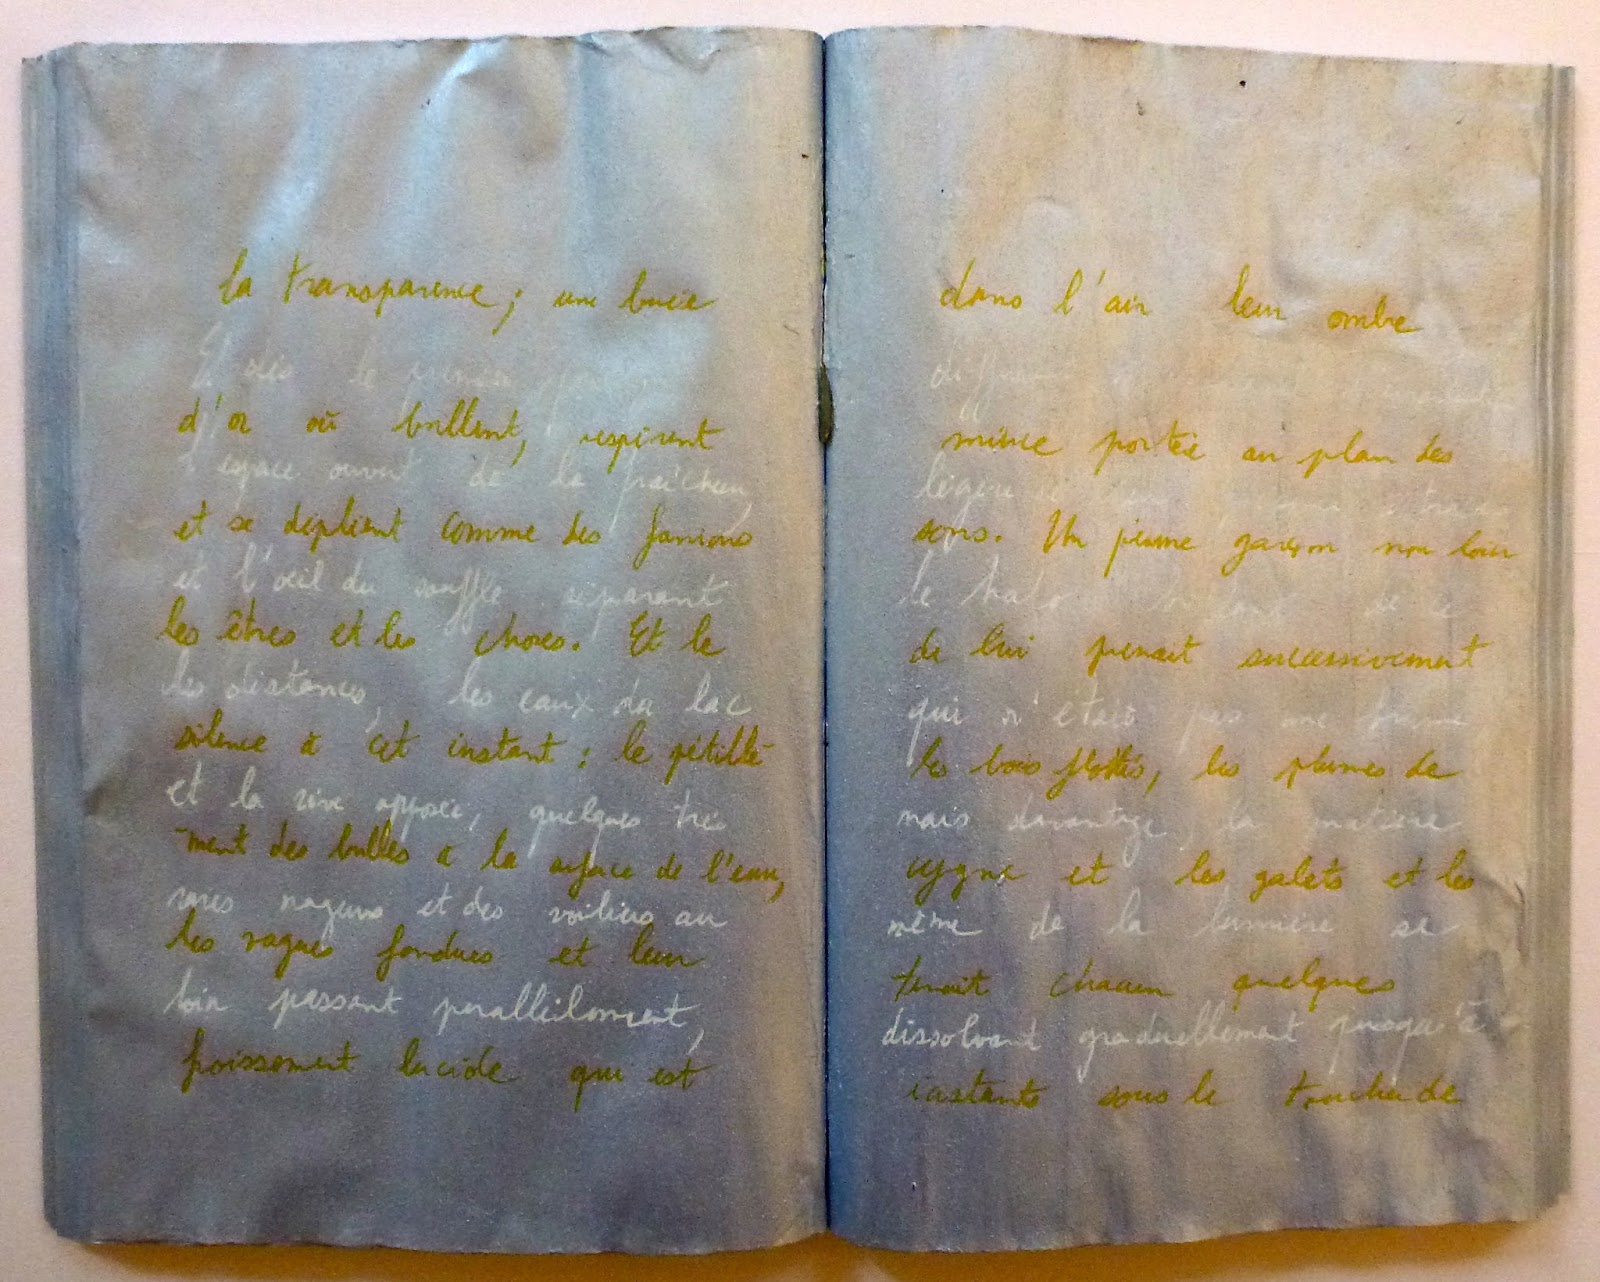 la transparence ; une buée
Et dès le premier
d'or où brillent, respirent
l'espace ouvert de la fraîcheur,
et se déplient comme des fanions
et l'œil du souffle séparant
les êtres et les choses. Et le
les distances, les eaux du lac
silence à cet instant : le pétille-
et la rive opposée, quelques très
-ment des bulles à la surface de l'eau,
rares nageurs et des voiliers au
les vagues fondues et leur
loin passant parallèlement,
froissement lucide qui est
dans l'air leur ombre
mince portée au plan des
légère
sons. Un jeune garçon non loin
le halo de ce
de lui prenait successivement
qui n'était pas une brume
les bois flottés, les plumes de
mais davantage, la matière
cygne et les galets et les
même de la lumière se
tenait chacun quelques
dissolvant graduellement jusqu'à
instants sous le toucher de